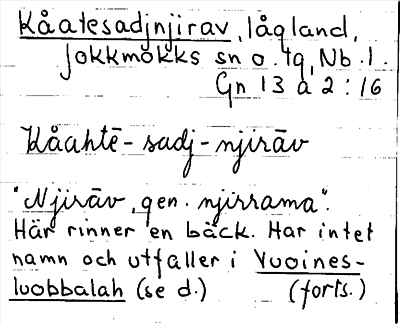 Kåatesadjnjirav, lågland,
Jokkmokks sn o. tg, Nb. l.
Gn 13 a 2 : 16
Kåahtē-sadj-njirāv
"Njirāv, gen. njirrama".
Här rinner en bäck. Har intet
namn och utfaller i Vuoines-
luobbalah (se d.) (forts.)